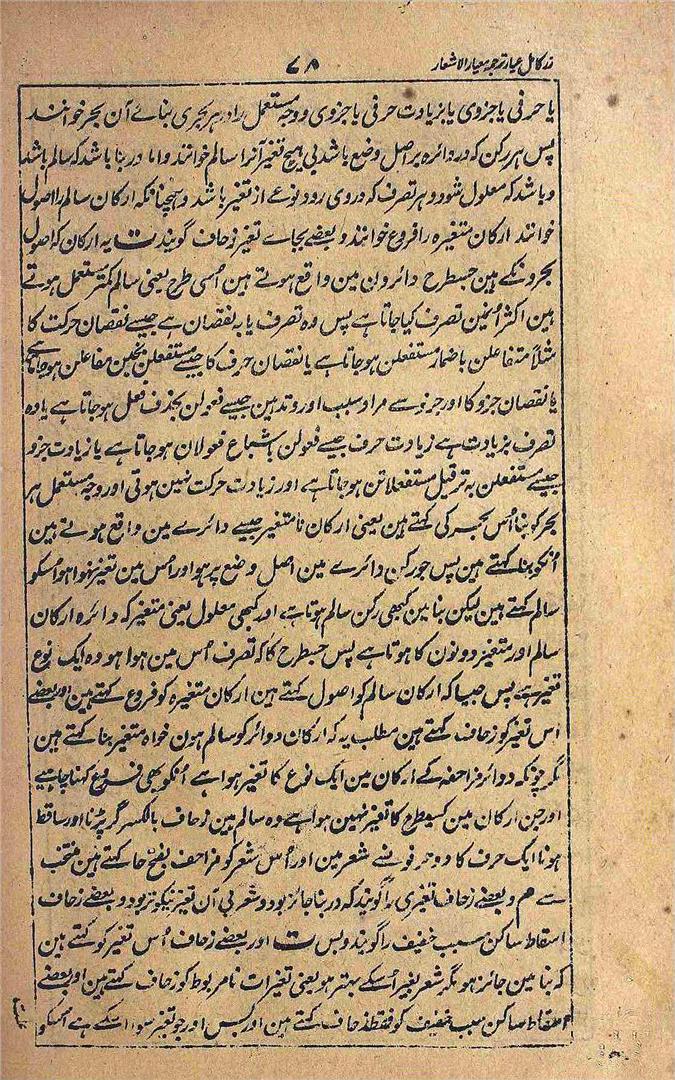 زر کامل عیار ترجمہ معیار الاشعار
۷۸
یا حرفی یا جزوی یا بزیادت حرفی یا جزوی و وجہ مستعمل را در ہر بحری بنائے آن بحر خوانند
پس ہر رکن کہ در دائرہ بر اصل وضع باشد بی ہیچ تغیر آنرا سالم خوانند و اما در بنا باشد کہ سالم باشد
و باشد کہ معلول شود و ہر تصرف کہ در وی رود نوعے از تغیر باشد و ہمچنانکہ ارکان سالم را اصول
خوانند ارکان متغیرہ را فروع خوانند و بعضے بجاے تغیر زحاف گویند ت یہ ارکان کہ اصول
بحرونکے ہین جسطرح دائرون مین واقع ہوتے ہین اُسی طرح یعنی سالم کمتر مستعمل ہوتے
ہین اکثر اُنمین تصرف کیا جاتا ہے پس وہ تصرف یا بہ نقصان ہے جیسے نقصان حرکت کا
مثلاً متفاعلن باضمار مستفعلن ہو جاتا ہے یا نقصان حرف کا جیسے مستفعلن بخبن مفاعلن ہوجاتا ہے
یا نقصان جزو کا اور جزو سے مراد سبب اور وتد ہین جیسے فعولن بحذف فعل ہو جاتا ہے یا وہ
تصرف بزیادت ہے زیادت حرف جیسے فعولن باشباع فعولان ہو جاتا ہے یا زیادت جزو
جیسے مستفعلن بہ ترفیل مستفعلاتن ہو جاتا ہے اور زیادت حرکت نہین ہوتی اور وجہ مستعمل ہر
بحر کو بنا اُس بحر کی کہتے ہین یعنی ارکان نا متغیر جیسے دائرے مین واقع ہوتے ہین
اُنکو بنا کہتے ہین پس جو رکن دائرے مین اصل وضع پر ہو اور اُس مین تغیر نہوا ہو اُسکو
سالم کہتے ہین لیکن بنا مین کبھی رکن سالم ہوتا ہے اور کبھی معلول یعنی متغیر کہ دائرہ ارکان
سالم اور متغیر دونون کا ہوتا ہے پس جسطرح کا کہ تصرف اُس مین ہوا ہو وہ ایک نوع
تغیر ہے پس جیسا کہ ارکان سالم کو اصول کہتے ہین ارکان متغیرہ کو فروع کہتے ہین اور بعضے
اس تغیر کو زحاف کہتے ہین مطلب یہ کہ ارکان دوائر کو سالم ہون خواہ متغیر بنا کہتے ہین
مگر چونکہ دوائر مزاحفہ کے ارکان مین ایک نوع کا تغیر ہوا ہے اُنکو بھی فروع کہنا چاہیے
اور جن ارکان مین کسیطرح کا تغیر نہین ہوا ہے وہ سالم ہین زحاف بالکسر گر پڑنا اور ساقط
ہونا ایک حرف کا دو حرفونسے شعر مین اور اُس شعر کو مزاحف بفتح حا کہتے ہین منتخب
سے ھم و بعضے زحاف تغیری را گویند کہ در بنا جائز بود و شعر بی آن تغیر نیکوتر بود و بعضے زحاف
اسقاط ساکن سبب خفیف را گویند و بس ت اور بعضے زحاف اُس تغیر کو کہتے ہین
کہ بنا مین جائز ہو مگر شعر بغیر اُسکے بہتر ہو یعنی تغیرات نامربوط کو زحاف کہتے ہین اور بعضے
اسقاط ساکن سبب خفیف کو فقط زحاف کہتے ہین اور بس اور جو تغیر سوا اسکے ہے اُسکو